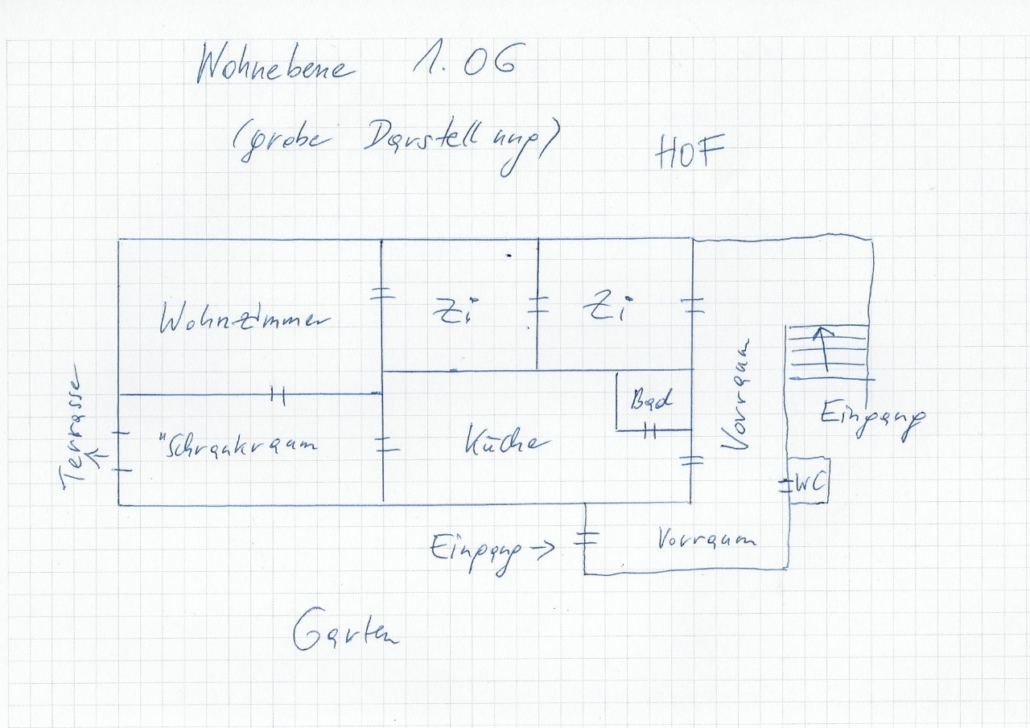 Wohnebene 1. OG
(grobe Darstellung)
HOF
Wohnzimmer
Zi
Zi
Vorraum
Bad
Eingang
Terrasse
"Schrankraum
Küche
WC
Eingang →
Vorraum
Garten